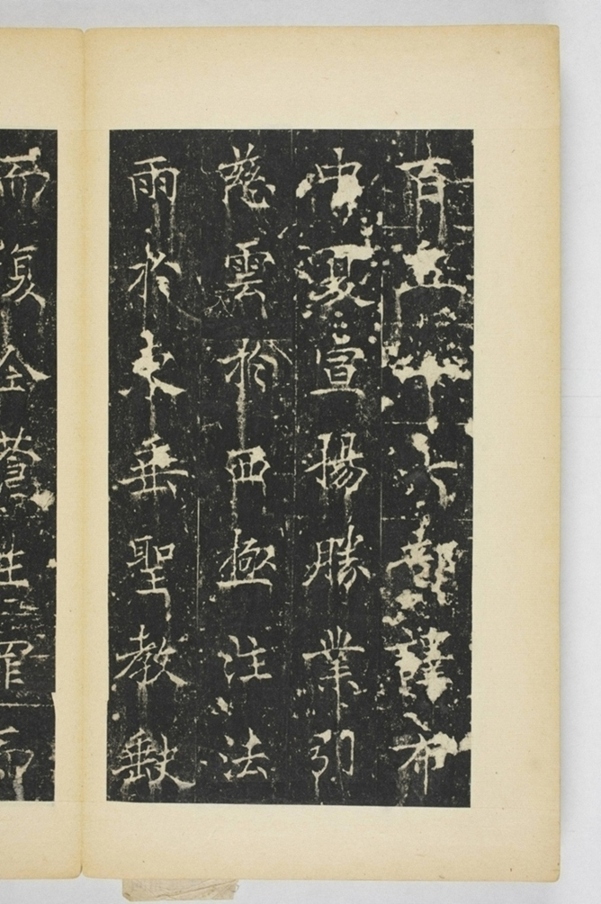 百五十七部譯布
中夏宣揚勝業引
慈雲於西極注法
雨於東垂聖教缺
而復全蒼生罪而